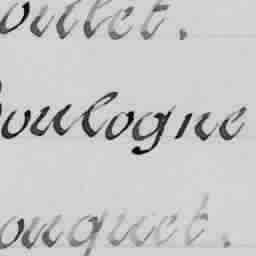 ouillet.
oulogne
ouquet.